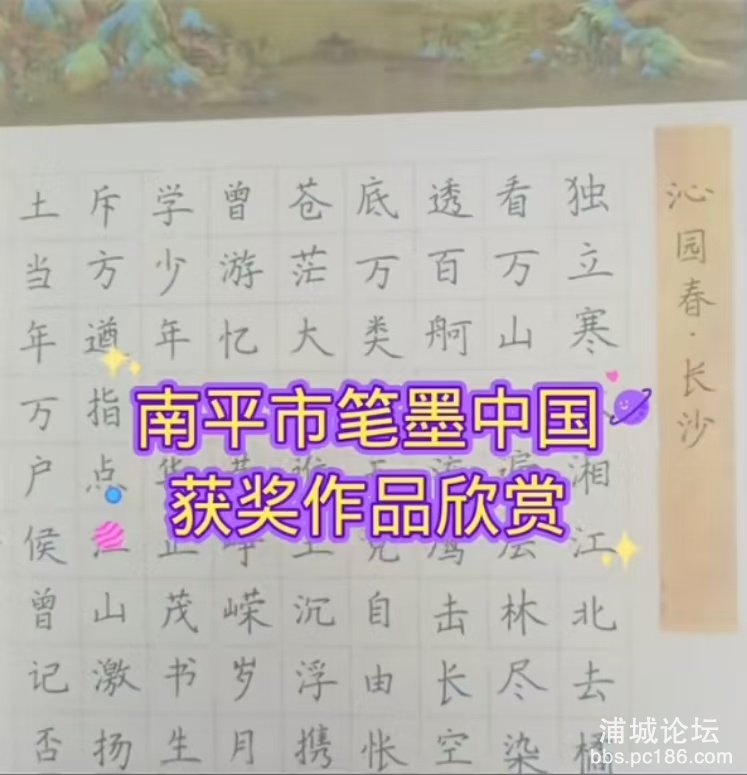 沁园春·长沙
独立寒湘江北去橘
看万山林尽染
透百舸击长空
底万类自由怅
苍茫大沉浮携
曾游忆嵘岁月
学少年茂书生
斥方遒指点山激扬
土当年万户侯曾记否
南平市笔墨中国
获奖作品欣赏
浦城论坛
bbs.pc186.com